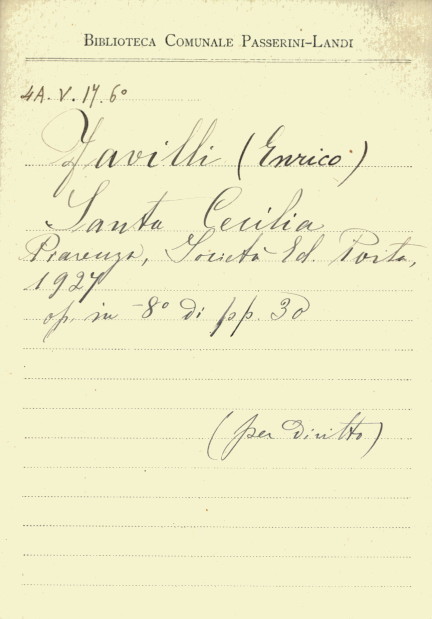 BIBLIOTECA COMUNALE PASSERINI-LANDI
4A. V. 17. 6°
Zavilli (Enrico)
Santa Cecilia
Piacenza, Società Ed. Porta,
1927
op. in -8° di pp. 30
(per diritto)